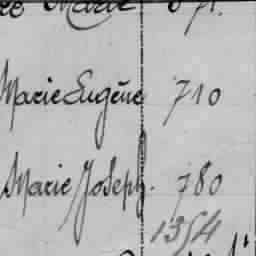 Marie 671.
Marie Eugène 710
Marie Joseph. 780
1354